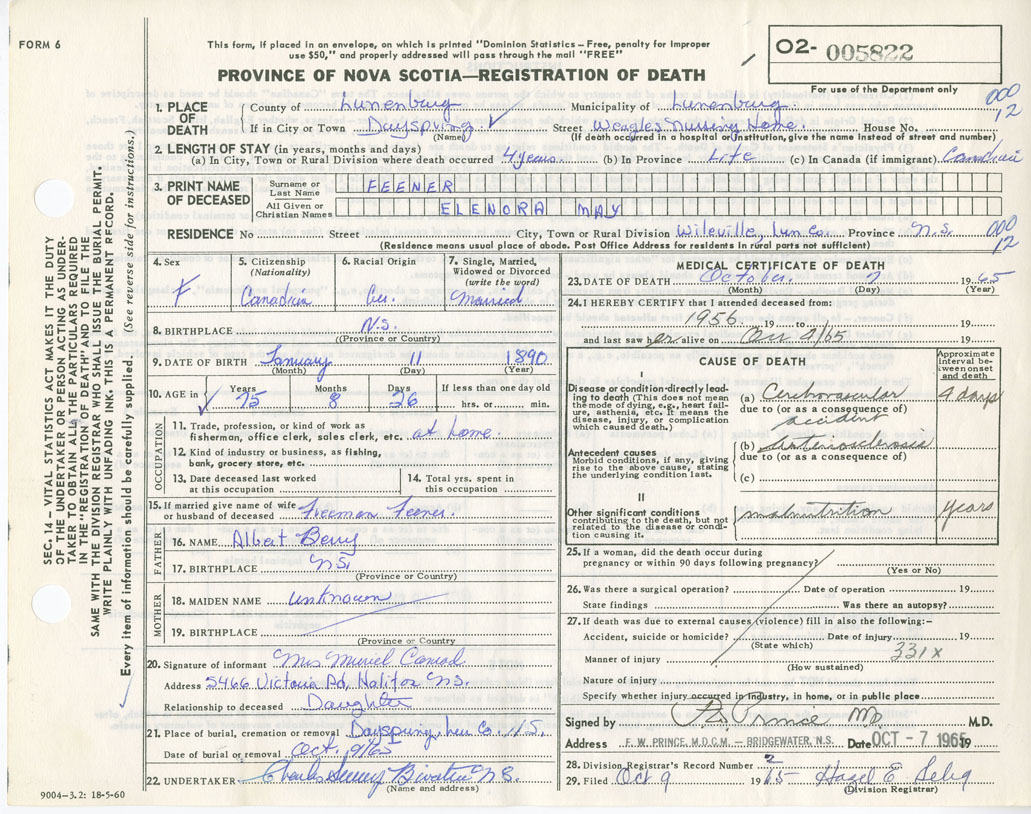 FORM 6
This form, if placed in an envelope, on which is printed "Dominion Statistics – Free, penalty for Improper
use $50," and properly addressed will pass through the mail "FREE"
PROVINCE OF NOVA SCOTIA—REGISTRATION OF DEATH
O2- 005822
For use of the Department only
000
12
1. PLACE OF DEATH
County of Lunenburg Municipality of Lunenburg
If in City or Town Dayspring Street Weagles Nursing Home House No.
(Name) (If death occurred in a hospital or institution, give the name instead of street and number)
2. LENGTH OF STAY (in years, months and days)
(a) In City, Town or Rural Division where death occurred 4 years (b) In Province Life (c) In Canada (if immigrant) Canadian
3. PRINT NAME OF DECEASED
Surname or Last Name FEENER
All Given or Christian Names ELENORA MAY
RESIDENCE No Street City, Town or Rural Division Wileville, Lun Co. Province N.S.
000
12
(Residence means usual place of abode. Post Office Address for residents in rural parts not sufficient)
4. Sex
F
5. Citizenship
(Nationality)
Canadian
6. Racial Origin
7. Single, Married, Widowed or Divorced
(write the word)
Married
8. BIRTHPLACE N.S.
(Province or Country)
9. DATE OF BIRTH January 11 1890
(Month) (Day) (Year)
10. AGE in
Years Months Days If less than one day old
75 8 26 hrs. or min.
OCCUPATION
11. Trade, profession, or kind of work as
fisherman, office clerk, sales clerk, etc. at home
12. Kind of industry or business, as fishing,
bank, grocery store, etc.
13. Date deceased last worked
at this occupation
14. Total yrs. spent in
this occupation
15. If married give name of wife
or husband of deceased Freeman Feener.
FATHER
16. NAME Albert Berry
17. BIRTHPLACE N.S.
(Province or Country)
MOTHER
18. MAIDEN NAME unknown
19. BIRTHPLACE
(Province or Country
20. Signature of informant Mrs Muriel Conrad
Address 5466 Victoria Rd, Halifax N.S.
Relationship to deceased Daughter
21. Place of burial, cremation or removal Dayspring, Lun Co. N.S.
Date of burial or removal Oct. 9/65
22. UNDERTAKER N.S.
(Name and address)
MEDICAL CERTIFICATE OF DEATH
23. DATE OF DEATH October 7 1965
(Month) (Day) (Year)
24. I HEREBY CERTIFY that I attended deceased from:
1956 19 to 19
and last saw her alive on 19
CAUSE OF DEATH
Approximate interval between onset and death
I
Disease or condition directly leading to death (This does not mean the mode of dying, e.g., heart failure, asthenia, etc. It means the disease, injury, or complication which caused death)
(a) Cerebrovascular 9 days
due to (or as a consequence of)
accident
Antecedent causes
Morbid conditions, if any, giving rise to the above cause, stating the underlying condition last.
(b) Arteriosclerosis
due to (or as a consequence of)
(c)
II
Other significant conditions
contributing to the death, but not related to the disease or condition causing it.
malnutrition years
25. If a woman, did the death occur during
pregnancy or within 90 days following pregnancy?
(Yes or No)
26. Was there a surgical operation? Date of operation 19
State findings Was there an autopsy?
27. If death was due to external causes (violence) fill in also the following:–
Accident, suicide or homicide? Date of injury 19
(State which) 331x
Manner of injury
(How sustained)
Nature of injury
Specify whether injury occurred in industry, in home, or in public place
Signed by Prince MD M.D.
Address F. W. PRINCE, M.D.C.M. – BRIDGEWATER, N.S. Date OCT - 7 1965 19
28. Division Registrar's Record Number 2
29. Filed Oct 9 1965 Hazel E Selig
(Division Registrar)
9004–3.2: 18-5-60
SEC. 14 – VITAL STATISTICS ACT MAKES IT THE DUTY
OF THE UNDERTAKER OR PERSON ACTING AS UNDER-
TAKER TO OBTAIN ALL THE PARTICULARS REQUIRED
IN THE "REGISTRATION OF DEATH" AND TO FILE THE
SAME WITH THE DIVISION REGISTRAR WHO SHALL ISSUE THE BURIAL PERMIT.
WRITE PLAINLY WITH UNFADING INK. THIS IS A PERMANENT RECORD.
Every item of information should be carefully supplied. (See reverse side for instructions.)